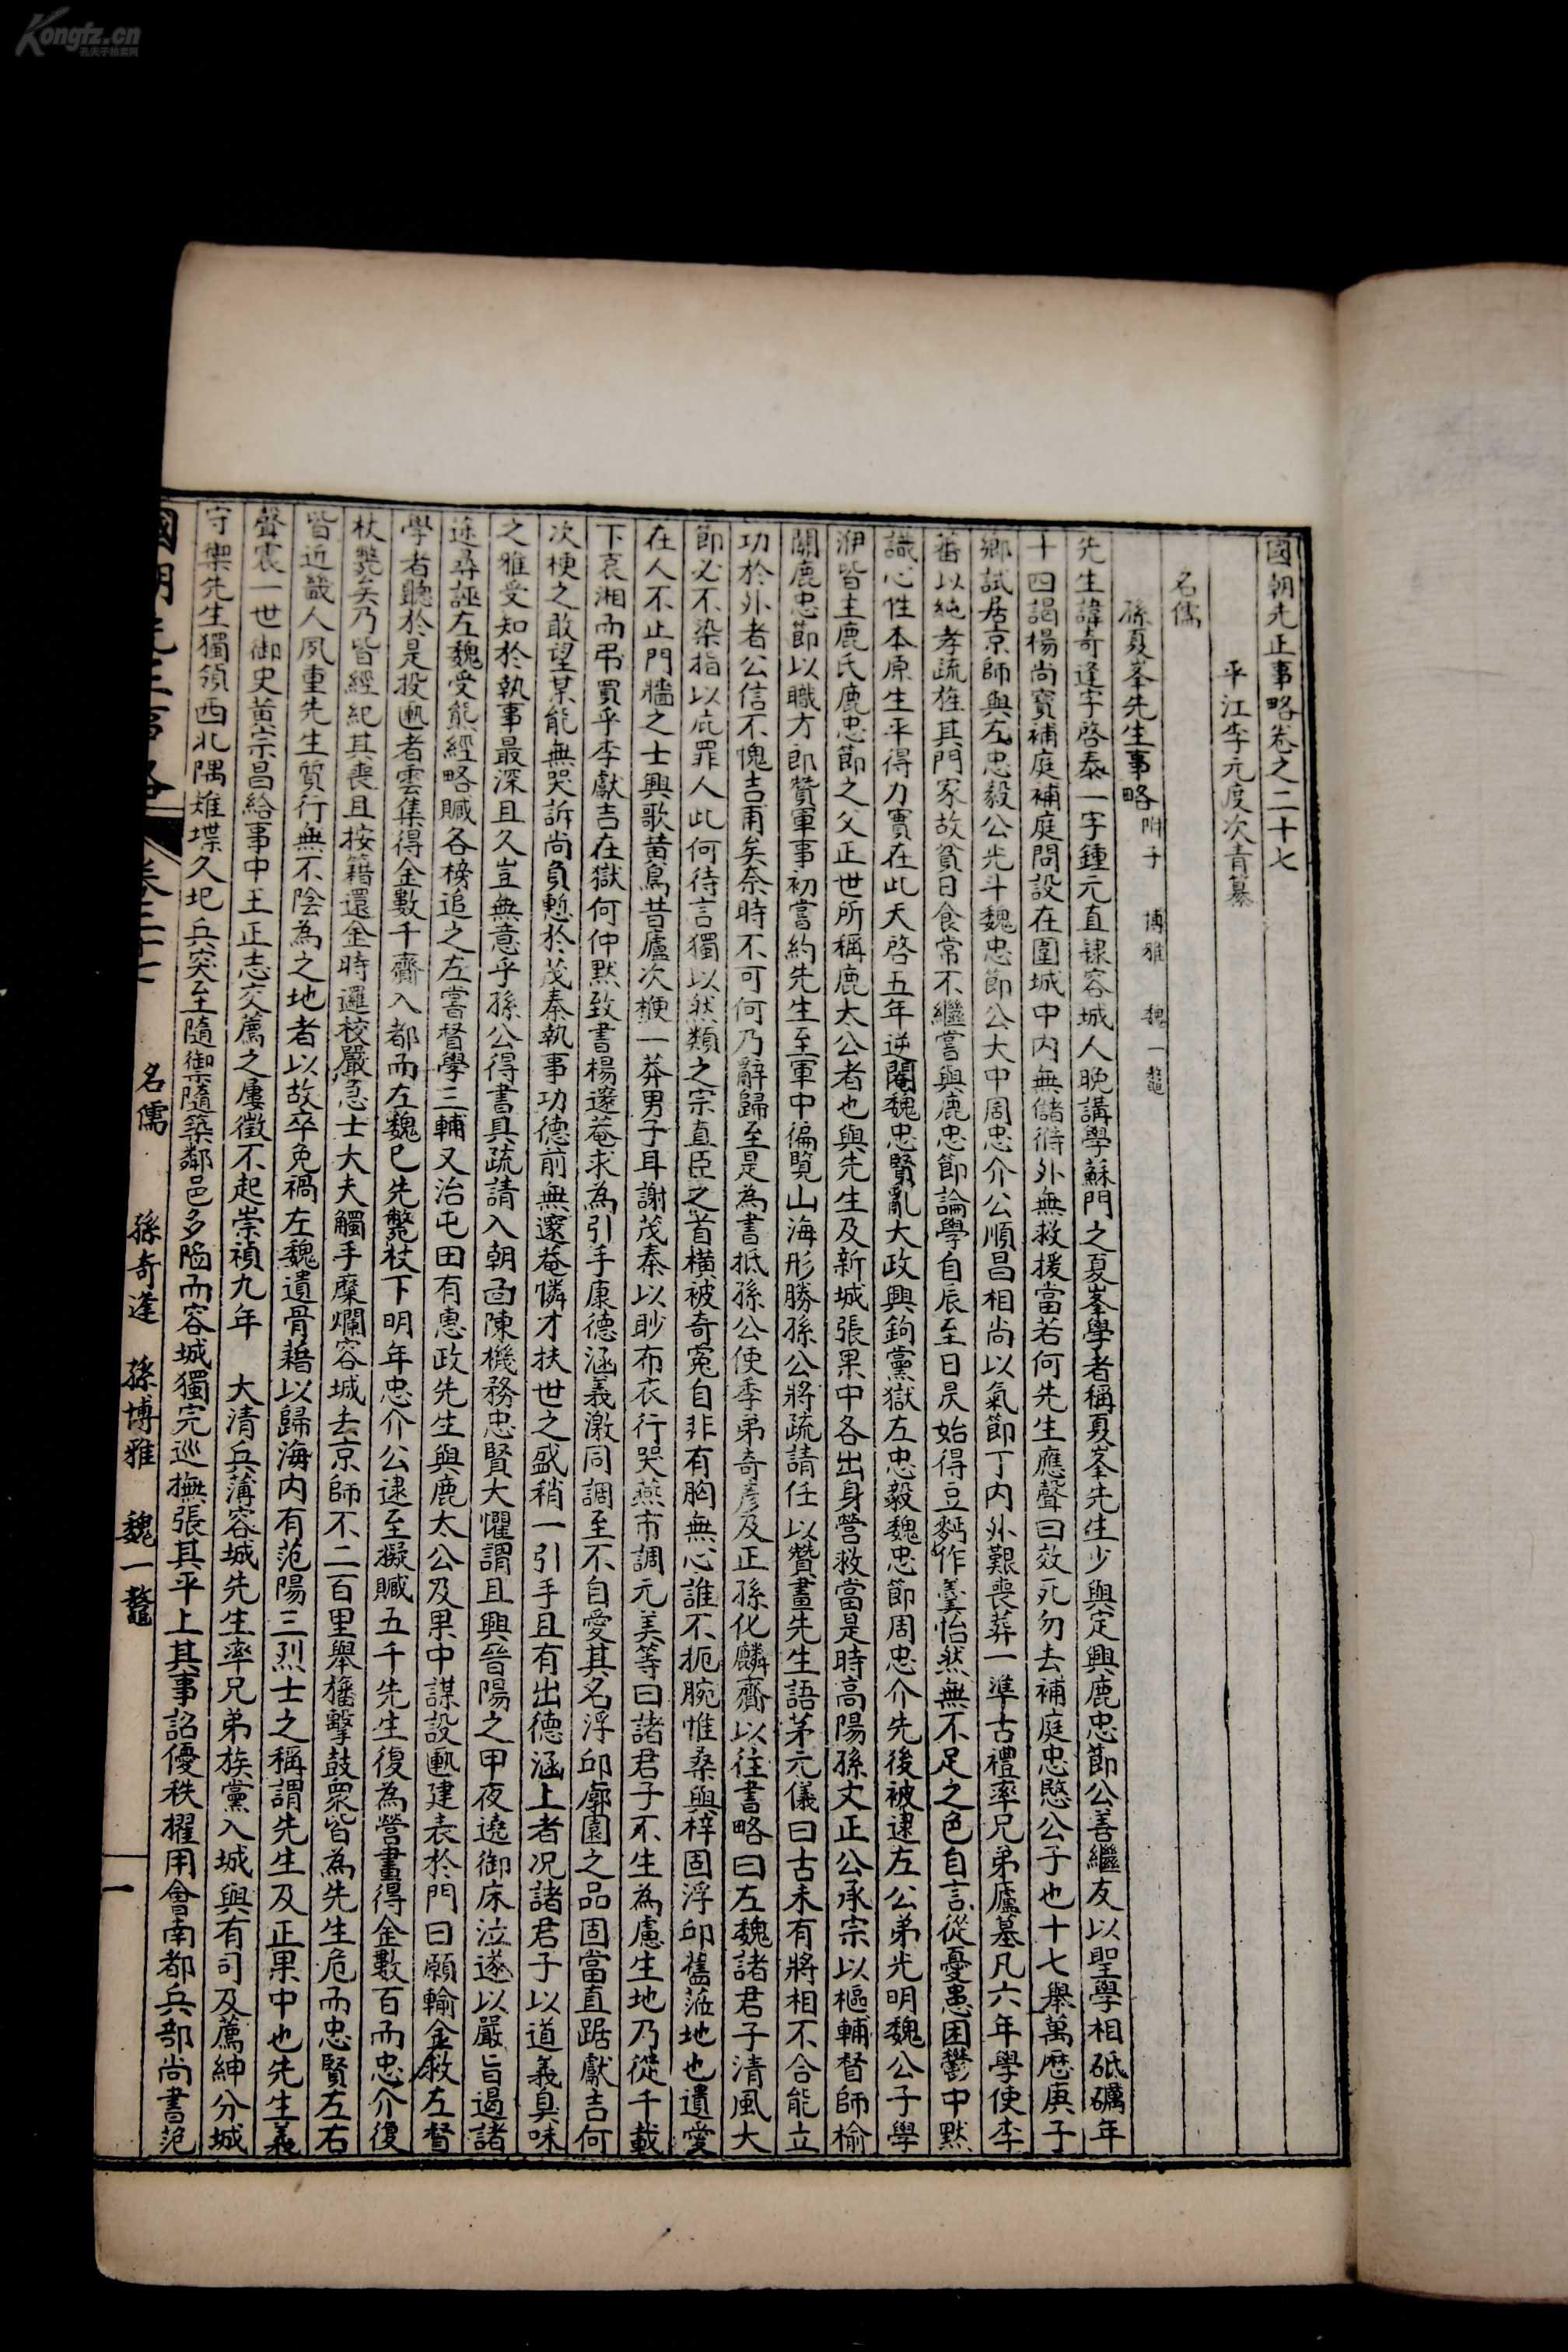 Kongfz.cn
孔夫子拍卖网
國朝先正事略卷之二十七
平江李元度次青纂
名儒
孫夏峯先生事略 附子 博雅 魏一鼇
先生諱奇逢字啓泰一字鍾元直隸容城人晚講學蘇門之夏峯學者稱夏峯先生少與定興鹿忠節公善繼友以聖學相砥礪年
十四謁楊尚寶補庭補庭問設在圍城中內無儲偫外無救援當若何先生應聲曰效死勿去補庭忠愍公子也十七舉萬歷庚子
鄉試居京師與左忠毅公光斗魏忠節公大中周忠介公順昌相尚以氣節丁內外艱喪葬一準古禮率兄弟廬墓凡六年學使李
蕃以純孝疏旌其門家故貧日食常不繼嘗與鹿忠節論學自辰至日昃始得豆麪作羹怡然無不足之色自言從憂患困鬱中默
識心性本原生平得力實在此天啓五年逆閹魏忠賢亂大政興鉤黨獄左忠毅魏忠節周忠介先後被逮左公弟光明魏公子學
洢皆主鹿氏鹿忠節之父正世所稱鹿太公者也與先生及新城張果中各出身營救當是時高陽孫文正公承宗以樞輔督師榆
關鹿忠節以職方郎贊軍事初嘗約先生至軍中徧覽山海形勝孫公將疏請任以贊畫先生語茅元儀曰古未有將相不合能立
功於外者公信不愧吉甫矣奈時不可何乃辭歸至是為書抵孫公使季弟奇彥及正孫化麟齎以往書略曰左魏諸君子清風大
節必不染指以庇罪人此何待言獨以然類之宗直臣之首橫被奇冤自非有胸無心誰不扼腕惟桑與梓固浮邱舊蒞地也遺愛
在人不止門牆之士興歌黃鳥昔廬次楩一莽男子耳謝茂秦以眇布衣行哭燕市調元美等曰諸君子不生為慮生地乃從千載
下哀湘而弔賈乎李獻吉在獄何仲默致書楊邃菴求為引手康德涵義激同調至不自愛其名浮邱廓園之品固當直踞獻吉何
次楩之敢望某能無哭訴尚負慙於茂秦執事功德前無邃菴憐才扶世之盛稍一引手且有出德涵上者况諸君子以道義臭味
之雅受知於執事最深且久豈無意乎孫公得書具疏請入朝面陳機務忠賢大懼謂且興晉陽之甲夜遶御床泣遂以嚴旨遏諸
途尋誣左魏受熊經略贓各榜追之左嘗督學三輔又治屯田有惠政先生與鹿太公及果中謀設匭建表於門曰願輸金救左督
學者聽於是投匭者雲集得金數千齎入都而左魏已先斃杖下明年忠介公逮至擬贓五千先生復為營畫得金數百而忠介復
杖斃矣乃皆經紀其喪且按籍還金時邏校嚴急士大夫觸手糜爛容城去京師不二百里舉旛擊鼓眾皆為先生危而忠賢左右
皆近畿人夙重先生質行無不陰為之地者以故卒免禍左魏遺骨藉以歸海內有范陽三烈士之稱謂先生及正果中也先生義
聲震一世御史黃宗昌給事中王正志交薦之屢徵不起崇禎九年 大清兵薄容城先生率兄弟族黨入城與有司及薦紳分城
守禦先生獨領西北隅雉堞久圮兵突至隨禦隨築鄰邑多陷而容城獨完巡撫張其平上其事詔優秩擢用會南都兵部尚書范
國朝先正事略 卷二十七 名儒 孫奇逢 孫博雅 魏一鼇 一